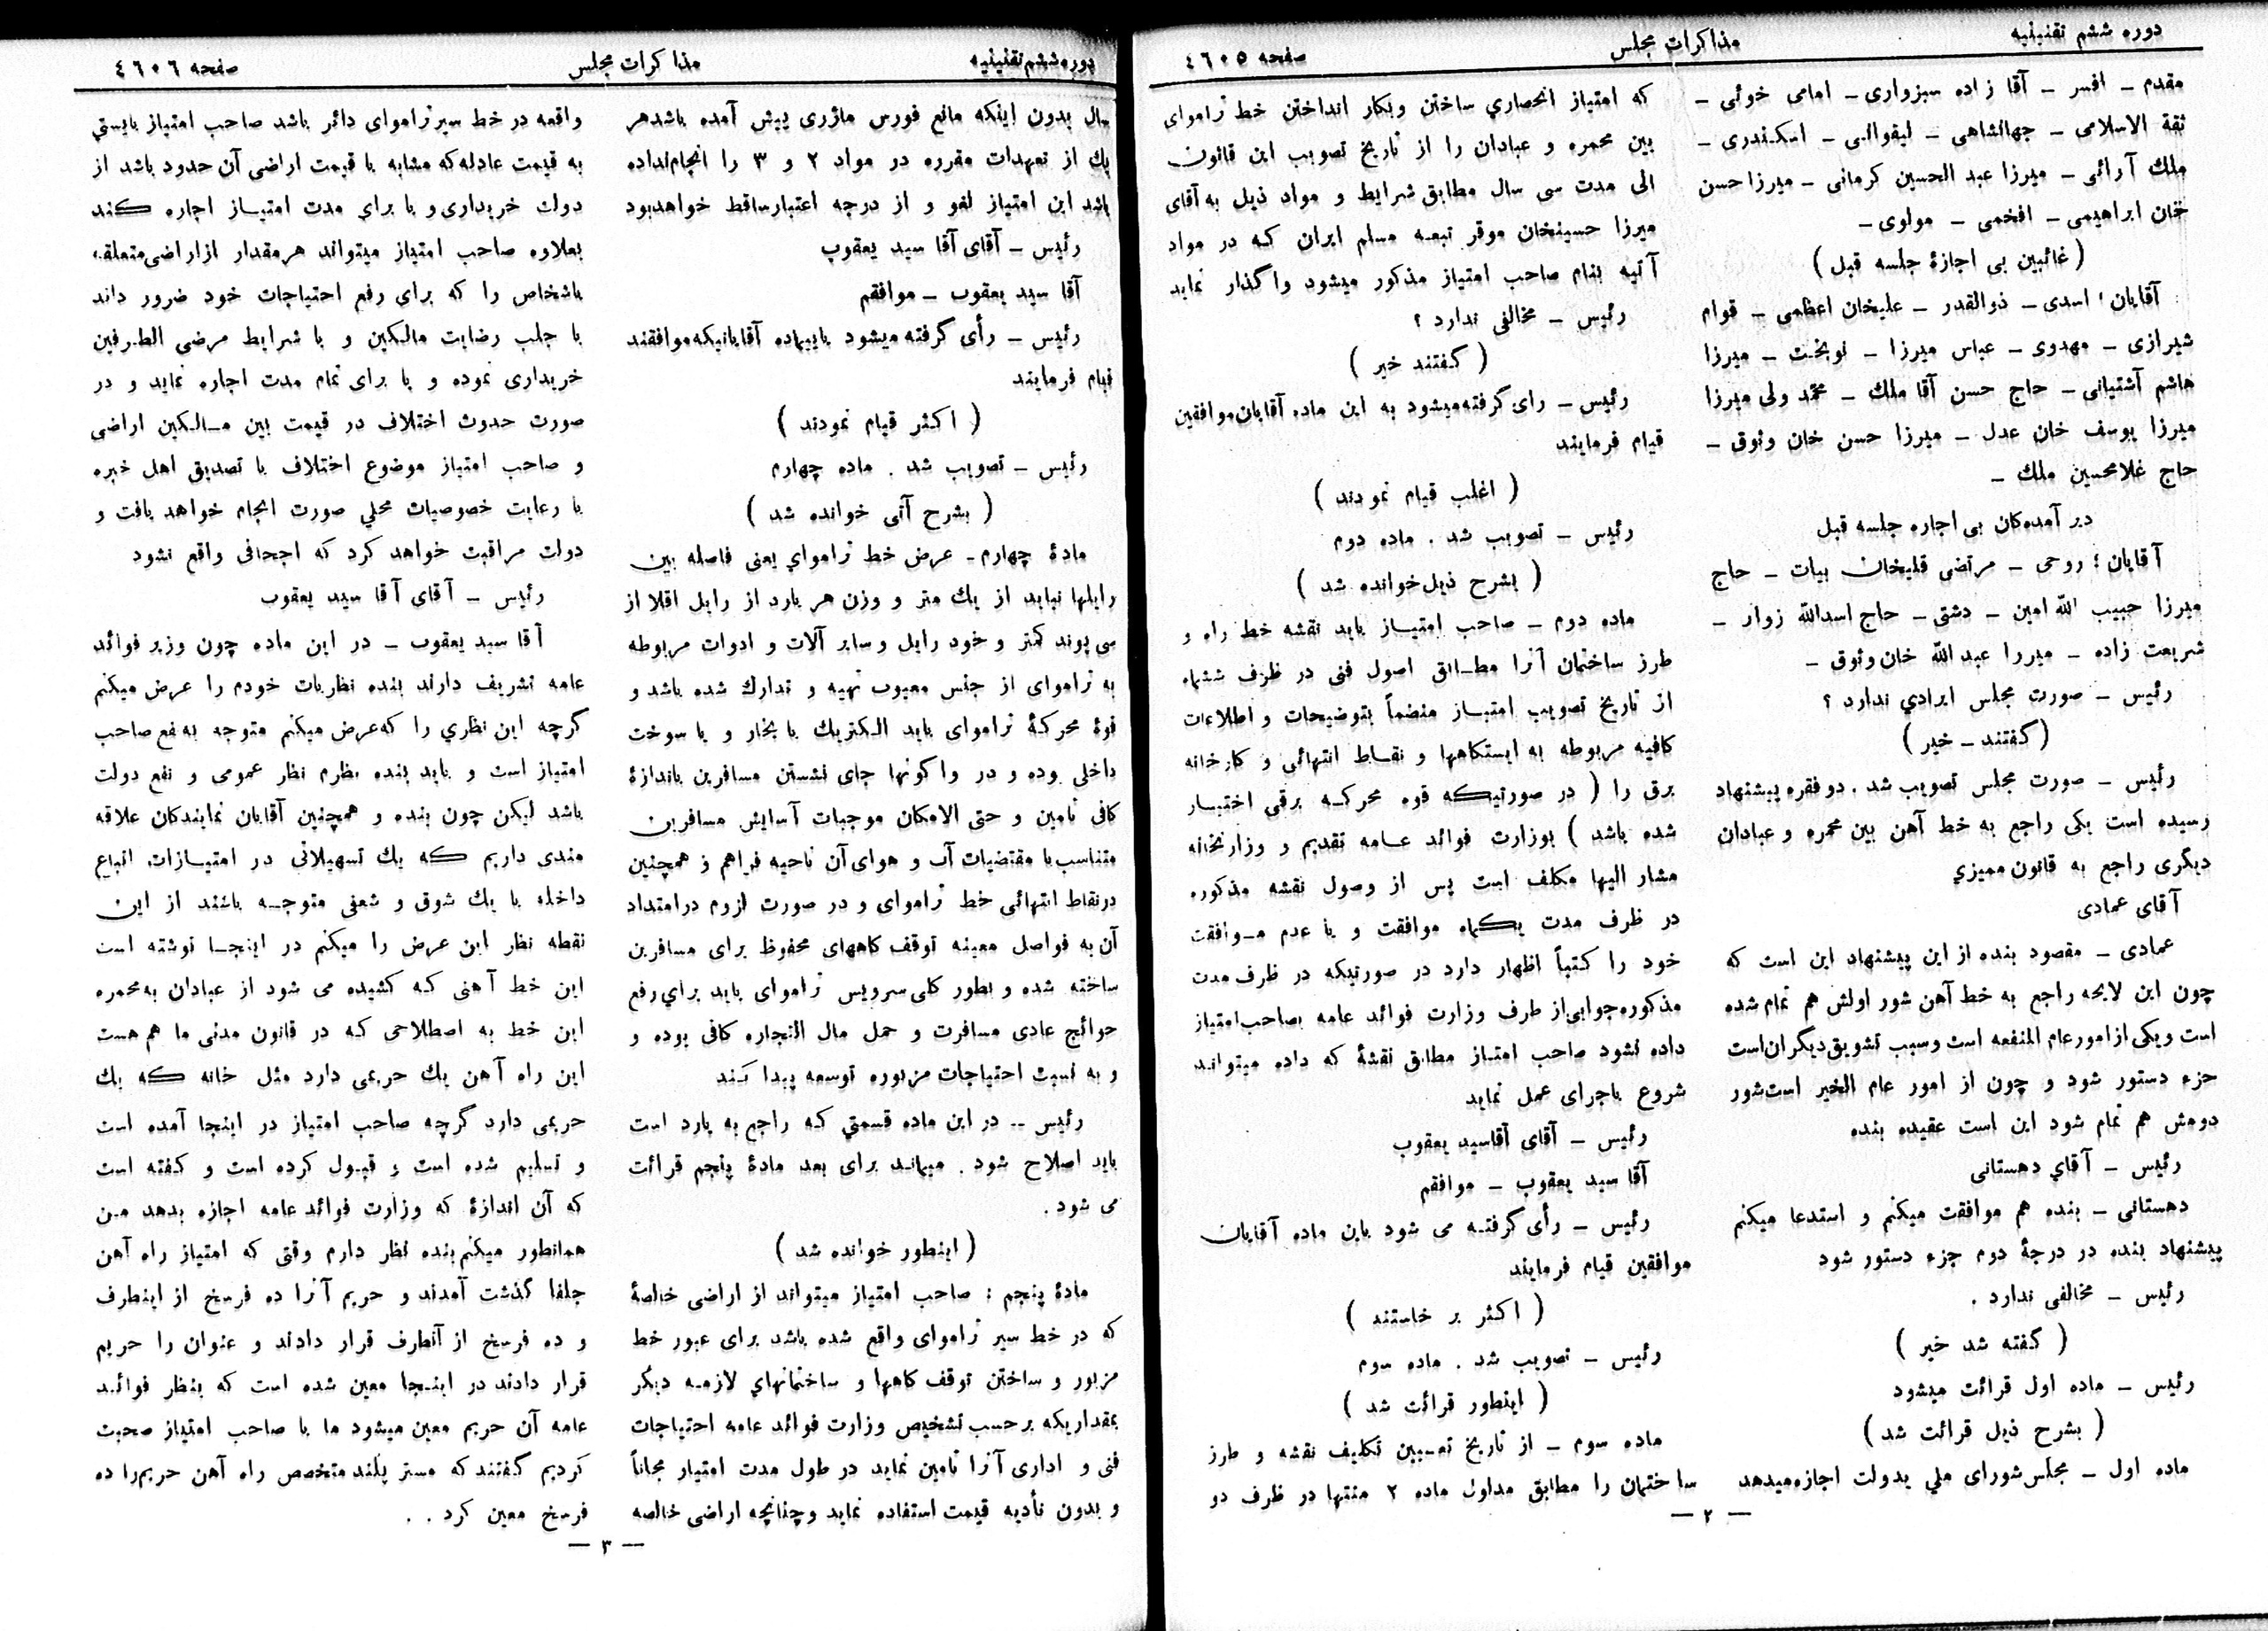 دوره ششم تقنینیه
مذاکرات مجلس
صفحه ٤٦٠٥
مقدم ــ افسر ــ آقا زاده سبزواری ــ امامی خوئی ــ
ثقة الاسلامی ــ جهانشاهی ــ لیقوانی ــ اسکندری ــ
ملك آرائی ــ میرزا عبد الحسین کرمانی ــ میرزا حسن
خان ابراهیمی ــ افخمی ــ مولوی ــ
( غائبین بی اجازۀ جلسه قبل )
آقایان ؛ اسدی ــ ذوالقدر ــ علیخان اعظمی ــ قوام
شیرازی ــ مهدوی ــ عباس میرزا ــ نوبخت ــ میرزا
هاشم آشتیانی ــ حاج حسن آقا ملك ــ محمد ولی میرزا
میرزا یوسف خان عدل ــ میرزا حسن خان وثوق ــ
حاج غلامحسین ملك ــ
دیر آمده‌کان بی اجازه جلسه قبل
آقایان ؛ روحی ــ مرتضی قلیخان بیات ــ حاج
میرزا حبیب الله امین ــ دشتی ــ حاج اسدالله زوار ــ
شریعت زاده ــ میررا عبد الله خان وثوق ــ
رئیس ــ صورت مجلس ایرادي ندارد ؟
( گفتند ــ خیر )
رئیس ــ صورت مجلس تصویب شد . دو فقره پیشنهاد
رسیده است یکی راجع به خط آهن بین محمره و عبادان
دیگری راجع به قانون ممیزي
آقای عمادی
عمادی ــ مقصود بنده از این پیشنهاد این است که
چون این لایحه راجع به خط آهن شور اولش هم تمام شده
است و یکی از امور عام المنفعه است و سبب تشویق دیگران است
جزء دستور شود و چون از امور عام الخیر است شور
دومش هم تمام شود این است عقیده بنده
رئیس ــ آقاي دهستانی
دهستانی ــ بنده هم موافقت میکنم و استدعا میکنم
پیشنهاد بنده در درجۀ دوم جزء دستور شود
رئیس ــ مخالفی ندارد .
( گفته شد خیر )
رئیس ــ ماده اول قرائت میشود
( بشرح ذیل قرائت شد )
ماده اول ــ مجلس شورای ملي بدولت اجازه میدهد
که امتیاز انحصاري ساختن وبکار انداختن خط تراموای
بین محمره و عبادان را از تاریخ تصویب این قانون
الی مدت سی سال مطابق شرایط و مواد ذیل به آقای
میرزا حسینخان موقر تبعه مسلم ایران که در مواد
آتیه بنام صاحب امتیاز مذکور میشود واگذار نماید
رئیس ــ مخالفی ندارد ؟
( گفتند خیر )
رئیس ــ رای گرفته میشود به این ماده آقایان موافقین
قیام فرمایند
( اغلب قیام نمودند )
رئیس ــ تصویب شد . ماده دوم
( بشرح ذیل خوانده شد )
ماده دوم ــ صاحب امتیاز باید نقشه خط راه و
طرز ساختمان آنرا مطابق اصول فنی در ظرف ششماه
از تاریخ تصویب امتیاز منضماً بتوضیحات و اطلاعات
کافیه مربوطه به ایستکاهها و نقاط انتهائی و کارخانه
برق را ( در صورتیکه قوه محرکه برقی اختیار
شده باشد ) بوزارت فوائد عامه تقدیم و وزارتخانه
مشار الیها مکلف است پس از وصول نقشه مذکوره
در ظرف مدت یکماه موافقت و یا عدم موافقت
خود را کتباً اظهار دارد در صورتیکه در ظرف مدت
مذکوره جوابی از طرف وزارت فوائد عامه بصاحب امتیاز
داده نشود صاحب امتیاز مطابق نقشۀ که داده میتواند
شروع باجرای عمل نماید
رئیس ــ آقای آقاسید یعقوب
آقا سید یعقوب ــ موافقم
رئیس ــ رأی گرفته می شود باین ماده آقایان
موافقین قیام فرمایند
( اکثر بر خاستند )
رئیس ــ تصویب شد . ماده سوم
( اینطور قرائت شد )
ماده سوم ــ از تاریخ تعیین تکلیف نقشه و طرز
ساختمان را مطابق مدلول ماده ٢ منتها در ظرف دو
— ٢ —
دوره ششم تقنینیه
مذاکرات مجلس
صفحه ٤٦٠٦
سال بدون اینکه مانع فورس ماژری پیش آمده باشد هر
یك از تعهدات مقرره در مواد ٢ و ٣ را انجام نداده
باشد این امتیاز لغو و از درجه اعتبار ساقط خواهد بود
رئیس ــ آقای آقا سید یعقوب
آقا سید یعقوب ــ موافقم
رئیس ــ رأی گرفته میشود باین ماده آقایانیکه موافقند
قیام فرمایند
( اکثر قیام نمودند )
رئیس ــ تصویب شد . ماده چهارم
( بشرح آتی خوانده شد )
مادۀ چهارم ــ عرض خط تراموای یعنی فاصله بین
رایلها نباید از یك متر و وزن هر یارد از رایل اقلا از
سی پوند کمتر و خود رایل و سایر آلات و ادوات مربوطه
به تراموای از جنس معیوب تهیه و تدارك شده باشد و
قوۀ محرکۀ تراموای باید الکتریك یا بخار و یا سوخت
داخلی بوده و در واکونها جای نشستن مسافرین باندازۀ
کافی تامین و حتی الامکان موجبات آسایش مسافرین
متناسب با مقتضیات آب و هوای آن ناحیه فراهم و همچنین
در نقاط انتهائی خط تراموای و در صورت لزوم در امتداد
آن به فواصل معینه توقف کاههای محفوظ برای مسافرین
ساخته شده و بطور کلی سرویس تراموای باید برای رفع
حوائج عادی مسافرت و حمل مال التجاره کافی بوده و
و به نسبت احتیاجات مزبوره توسعه پیدا کند
رئیس ــ در این ماده قسمتی که راجع به یارد است
باید اصلاح شود . میماند برای بعد مادۀ پنجم قرائت
می شود .
( اینطور خوانده شد )
مادۀ پنجم : صاحب امتیاز میتواند از اراضی خالصۀ
که در خط سیر تراموای واقع شده باشد برای عبور خط
مزبور و ساختن توقف کاهها و ساختمانهاي لازمه دیگر
بمقداریکه بر حسب تشخیص وزارت فوائد عامه احتیاجات
فنی و اداری آنرا تامین نماید در طول مدت امتیاز مجاناً
و بدون تأدیه قیمت استفاده نماید و چنانچه اراضی خالصه
واقعه در خط سیر تراموای دائر باشد صاحب امتیاز بایستي
به قیمت عادله که مشابه با قیمت اراضی آن حدود باشد از
دولت خریداری و یا برای مدت امتیاز اجاره کند
بعلاوه صاحب امتیاز میتواند هر مقدار از اراضی متعلقه
باشخاص را که برای رفع احتیاجات خود ضرور داند
با جلب رضایت مالکین و با شرایط مرضی الطرفین
خریداری نموده و یا برای تمام مدت اجاره نماید و در
صورت حدوث اختلاف در قیمت بین مالکین اراضی
و صاحب امتیاز موضوع اختلاف با تصدیق اهل خبره
با رعایت خصوصیات محلي صورت انجام خواهد یافت و
دولت مراقبت خواهد کرد که اجحافی واقع نشود
رئیس ــ آقای آقا سید یعقوب
آقا سید یعقوب ــ در این ماده چون وزیر فوائد
عامه تشریف دارند بنده نظریات خودم را عرض میکنم
گرچه این نظاري را که عرض میکنم متوجه به نفع صاحب
امتیاز است و باید بنده نظرم نظر عمومی و نفع دولت
باشد لیکن چون بنده و همچنین آقایان نمایندکان علاقه
مندی داریم که یك تسهیلاتی در امتیازات اتباع
داخله با یك شوق و شعفی متوجه باشند از این
نقطه نظر این عرض را میکنم در اینجا نوشته است
این خط آهنی که کشیده می شود از عبادان به محمره
این خط به اصطلاحی که در قانون مدنی ما هم هست
این راه آهن یك حریمی دارد مثل خانه که یك
حریمی دارد گرچه صاحب امتیاز در اینجا آمده است
و تسلیم شده است و قبول کرده است و گفته است
که آن اندازۀ که وزارت فوائد عامه اجازه بدهد من
همانطور میکنم بنده نظر دارم وقتی که امتیاز راه آهن
جلفا گذشت آمدند و حریم آنرا ده فرسخ از اینطرف
و ده فرسخ از آنطرف قرار دادند و عنوان را حریم
قرار دادند در اینجا معین شده است که بنظر فوائد
عامه آن حریم معین میشود ما با صاحب امتیاز صحبت
کردیم گفتند که مستر پلند متخصص راه آهن حریم را ده
فرسخ معین کرد . .
— ٣ —